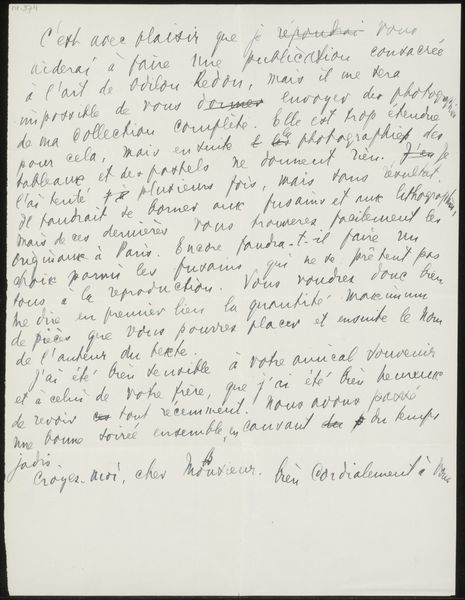 M 374
C'est avec plaisir que je répondrai vous
aiderai à faire une publication consacrée
à l'art de Odilon Redon, mais il me sera
impossible de vous donner envoyer des photographies
de ma collection complète. Elle est trop étendue
pour cela, mais ensuite les photographies des
tableaux et des pastels ne donnent rien. J'en Je
l'ai tenté plusieurs fois, mais sans résultat.
Il faudrait se borner aux fusains et aux lithographies,
mais de ces dernières vous trouverez facilement les
originaux à Paris. Encore faudra-t-il faire un
choix parmi les fusains, qui ne se prêtent pas
tous à la reproduction. Vous voudrez donc bien
me dire en premier lieu la quantité maximum
de pièces que vous pourrez placer et ensuite le nom
de l'auteur du texte.
J'ai été bien sensible à votre amical souvenir
et à celui de votre frère, que j'ai été bien heureux
de revoir tout récemment. Nous avons passé
une bonne soirée ensemble, en causant du temps
jadis.
Croyez-moi, cher Monsieur. bien cordialement à vous